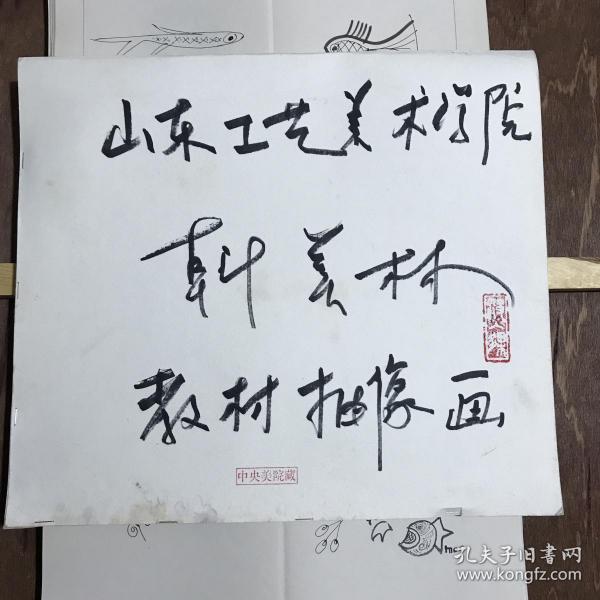 山东工艺美术学院
韩美林
教材抽像画
中央美院藏
mc
孔夫子旧书网
www.kongfz.com